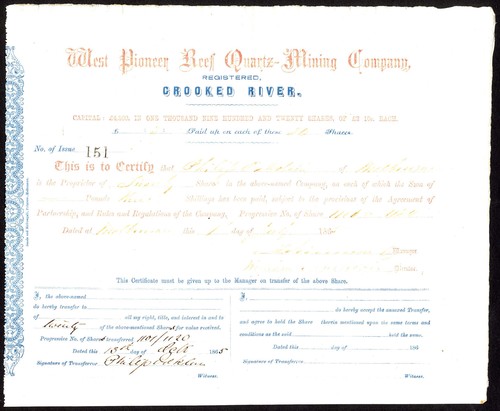 West Pioneer Reef Quartz-Mining Company,
REGISTERED,
CROOKED RIVER.
IN ONE THOUSAND NINE HUNDRED AND TWENTY SHARES, OF £2 10s. EACH.
Paid up on each of these Shares.
No. of Issue 151
This is to Certify that of
is the Proprietor of Shares in the above-named Company, on each of which the Sum of
Pounds Shillings has been paid, subject to the provisions of the Agreement of
Partnership, and Rules and Regulations of the Company, Progressive No. of Share
Dated at this day of 186
Manager
This Certificate must be given up to the Manager on transfer of the above Share.
I, the above-named
do hereby transfer to
of all my right, title, and interest in and to
twenty of the above-mentioned Shares for value received.
Progressive No. of Shares transferred 1101/1120
Dated this 13th day of 1865
Signature of Transferrer Philip
Witness.
I,
of do hereby accept the annexed Transfer,
and agree to hold the Shares therein mentioned upon the same terms and
conditions as the said held the same.
Dated this day of 186
Signature of Transferree
Witness.